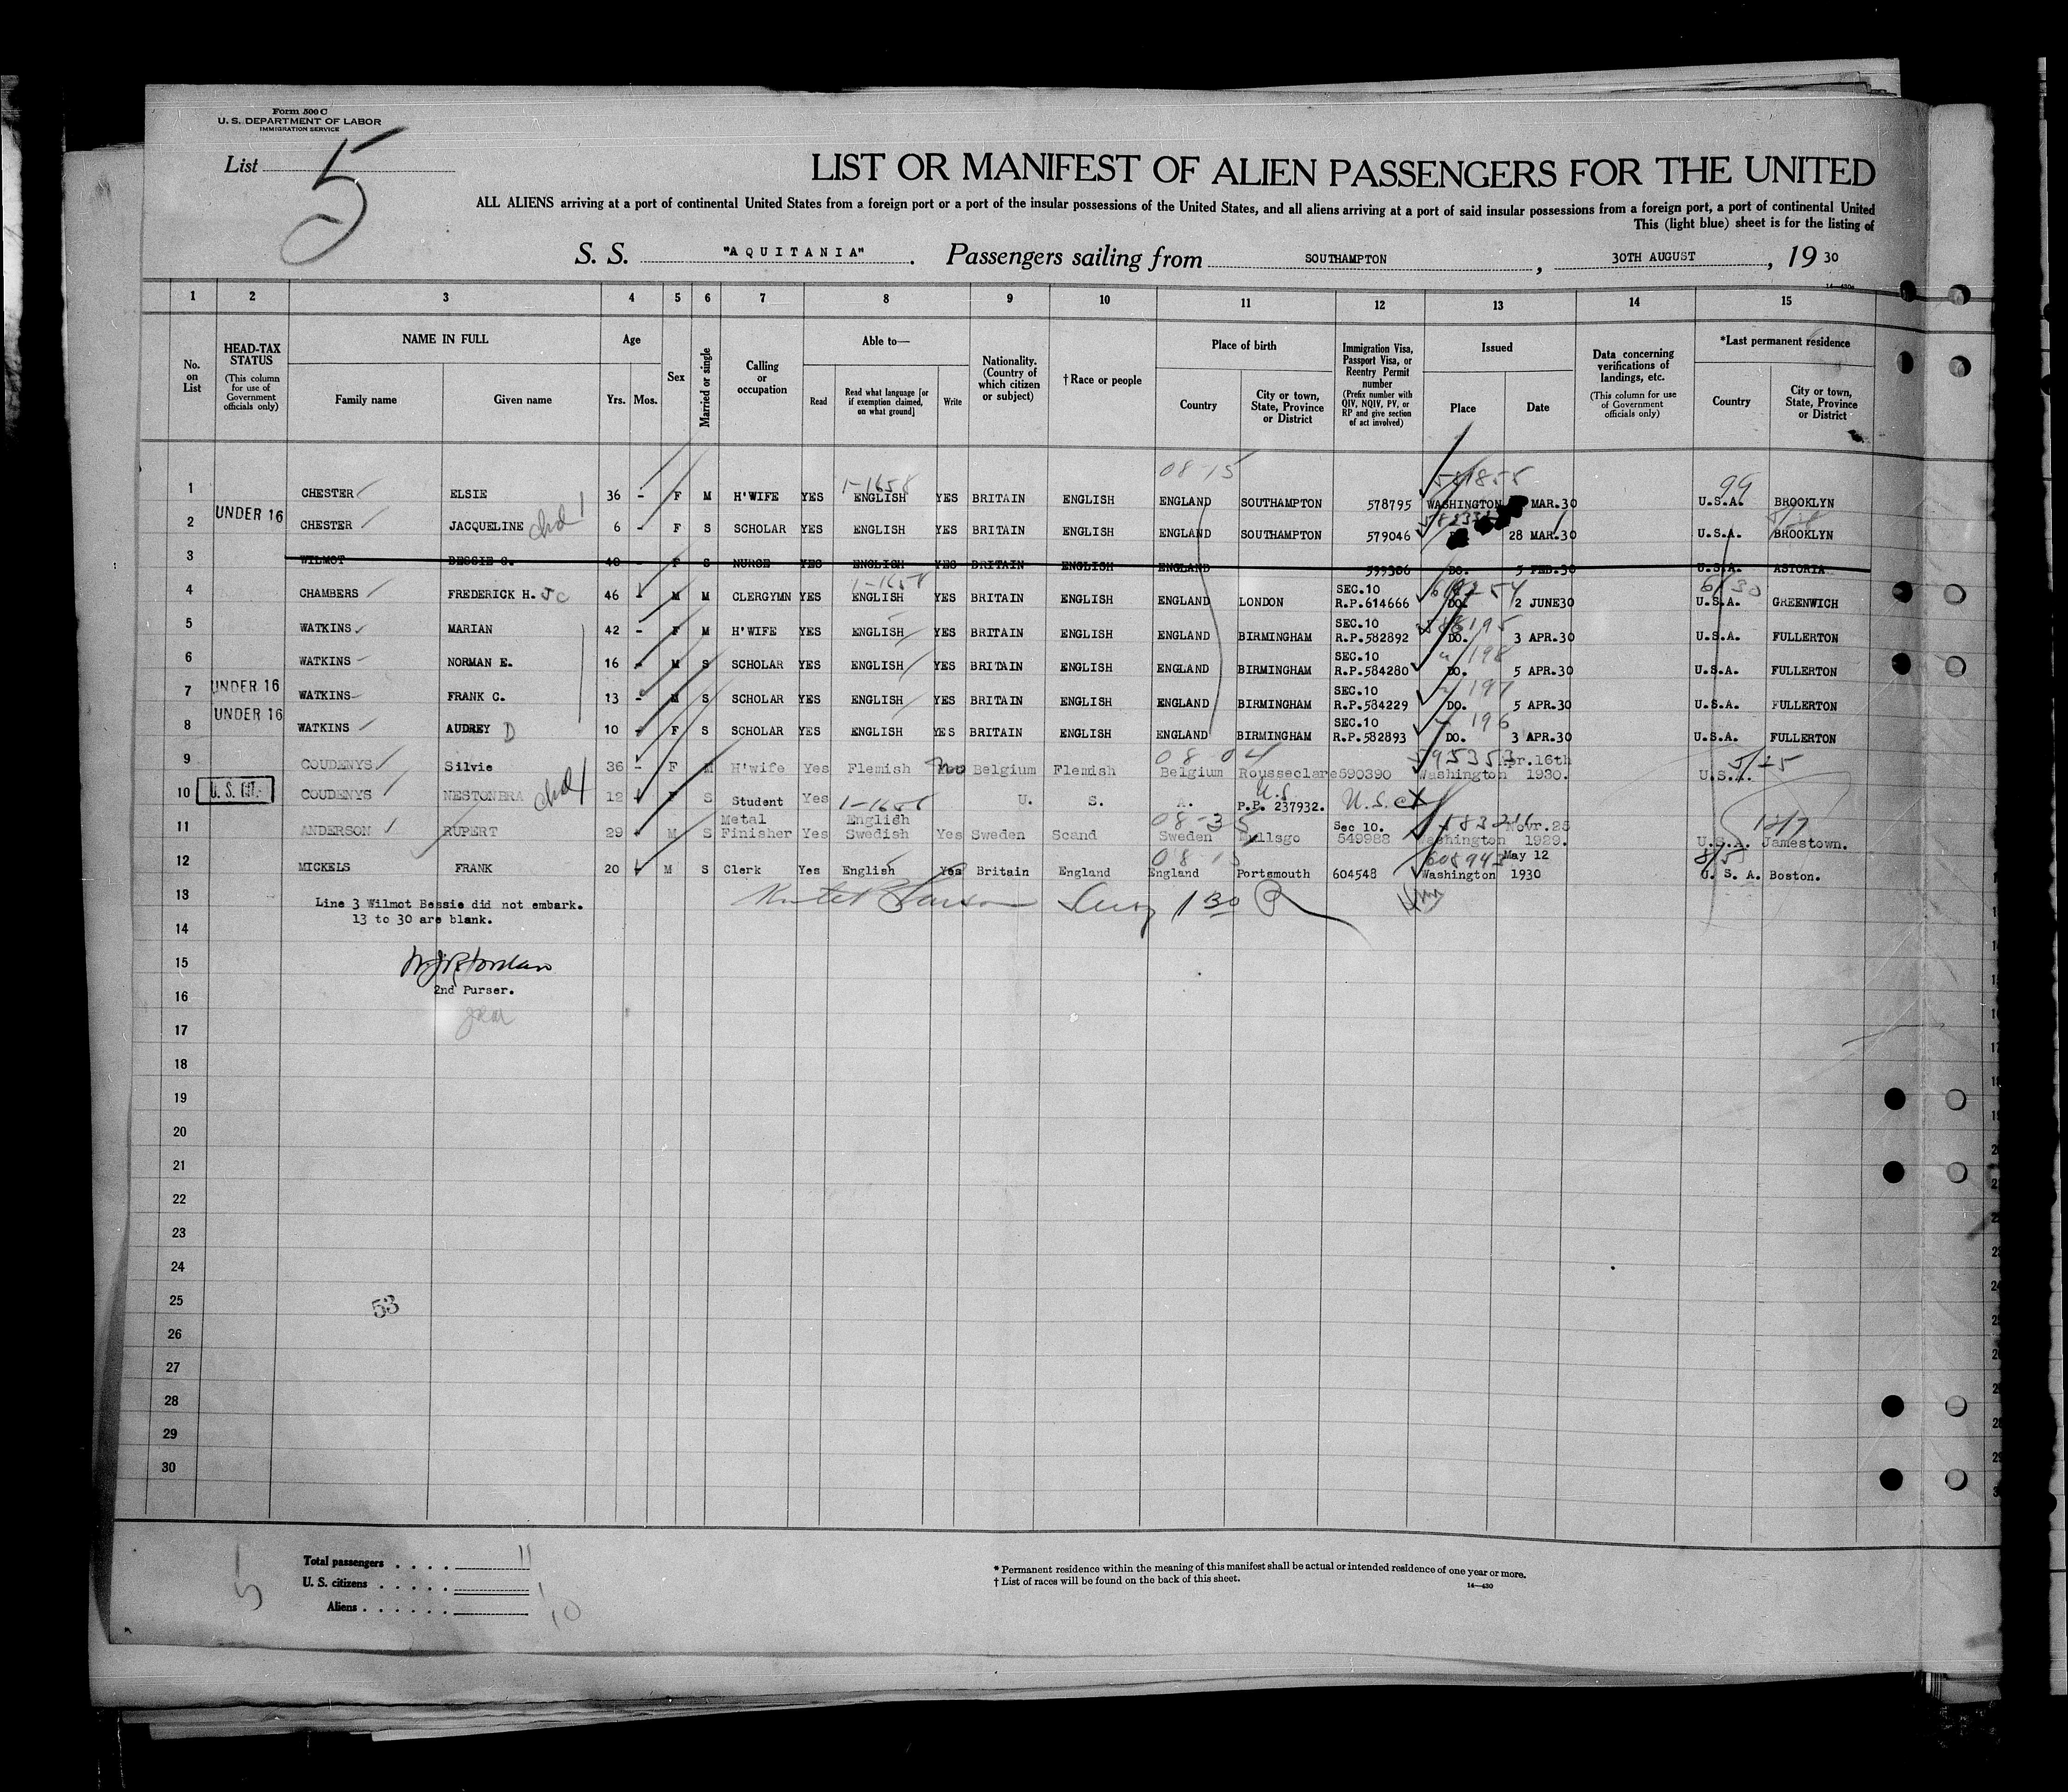 Form 500 C
U. S. DEPARTMENT OF LABOR
IMMIGRATION SERVICE
List 5
LIST OR MANIFEST OF ALIEN PASSENGERS FOR THE UNITED
ALL ALIENS arriving at a port of continental United States from a foreign port or a port of the insular possessions of the United States, and all aliens arriving at a port of said insular possessions from a foreign port, a port of continental United
This (light blue) sheet is for the listing of
S. S. "AQUITANIA". Passengers sailing from SOUTHAMPTON, 30TH AUGUST, 19 30
1 2 3 4 5 6 7 8 9 10 11 12 13 14 15
No. on List
HEAD-TAX STATUS
(This column for use of Government officials only)
NAME IN FULL
Family name
Given name
Age
Yrs. Mos.
Sex
Married or single
Calling or occupation
Able to—
Read
Read what language [or if exemption claimed, on what ground]
Write
Nationality. (Country of which citizen or subject)
† Race or people
Place of birth
Country
City or town, State, Province or District
Immigration Visa, Passport Visa, or Reentry Permit number
(Prefix number with QIV, NQIV, PV, or RP and give section of act involved)
Issued
Place
Date
Data concerning verifications of landings, etc.
(This column for use of Government officials only)
*Last permanent residence
Country
City or town, State, Province or District
08 15
1-1658 99
1 CHESTER ELSIE 36 - F M H'WIFE YES ENGLISH YES BRITAIN ENGLISH ENGLAND SOUTHAMPTON 578795 WASHINGTON MAR.30 U.S.A. BROOKLYN
2 UNDER 16 CHESTER JACQUELINE chd 6 - F S SCHOLAR YES ENGLISH YES BRITAIN ENGLISH ENGLAND SOUTHAMPTON 579046 28 MAR.30 U.S.A. BROOKLYN
3 WILMOT BESSIE 40 - F S NURSE YES ENGLISH YES BRITAIN ENGLISH ENGLAND 599386 DO. 5 FEB.30 U.S.A. ASTORIA
1-1658 6/30
4 CHAMBERS FREDERICK H. 46 - M M CLERGYMN YES ENGLISH YES BRITAIN ENGLISH ENGLAND LONDON SEC.10 R.P.614666 DO. 2 JUNE30 U.S.A. GREENWICH
5 WATKINS MARIAN 42 - F M H'WIFE YES ENGLISH YES BRITAIN ENGLISH ENGLAND BIRMINGHAM SEC.10 R.P.582892 DO. 3 APR.30 U.S.A. FULLERTON
6 WATKINS NORMAN E. 16 - M S SCHOLAR YES ENGLISH YES BRITAIN ENGLISH ENGLAND BIRMINGHAM SEC.10 R.P.584280 DO. 198 5 APR.30 U.S.A. FULLERTON
7 UNDER 16 WATKINS FRANK C. 13 - M S SCHOLAR YES ENGLISH YES BRITAIN ENGLISH ENGLAND BIRMINGHAM SEC.10 R.P.584229 DO. 197 5 APR.30 U.S.A. FULLERTON
8 UNDER 16 WATKINS AUDREY D 10 - F S SCHOLAR YES ENGLISH YES BRITAIN ENGLISH ENGLAND BIRMINGHAM SEC.10 R.P.582893 DO. 196 3 APR.30 U.S.A. FULLERTON
08 04
9 COUDENYS Silvie 36 - F M H'wife Yes Flemish no Belgium Flemish Belgium Rousseclare 590390 Washington Apr.16th 1930. U.S.A. 5/25
10 U. S. CIT. COUDENYS NESTONBRA chd 12 F S Student Yes 1-1658 U. S. A. U.S. P.P. 237932. U.S. cit
08-35
11 ANDERSON RUPERT 29 M S Metal Finisher Yes English Swedish Yes Sweden Scand Sweden Sec 10. 549988 Washington Novr.25 1929. U.S.A. Jamestown.
08 15
12 MICKELS FRANK 20 M S Clerk Yes English Yes Britain England England Portsmouth 604548 Washington May 12 1930 U. S. A. Boston.
13 Line 3 Wilmot Bessie did not embark.
13 to 30 are blank.
14
15
2nd Purser.
16
17
18
19
20
21
22
23
24
25
53
26
27
28
29
30
Total passengers 11
U. S. citizens 1
Aliens 10
5
* Permanent residence within the meaning of this manifest shall be actual or intended residence of one year or more.
† List of races will be found on the back of this sheet.
14—430